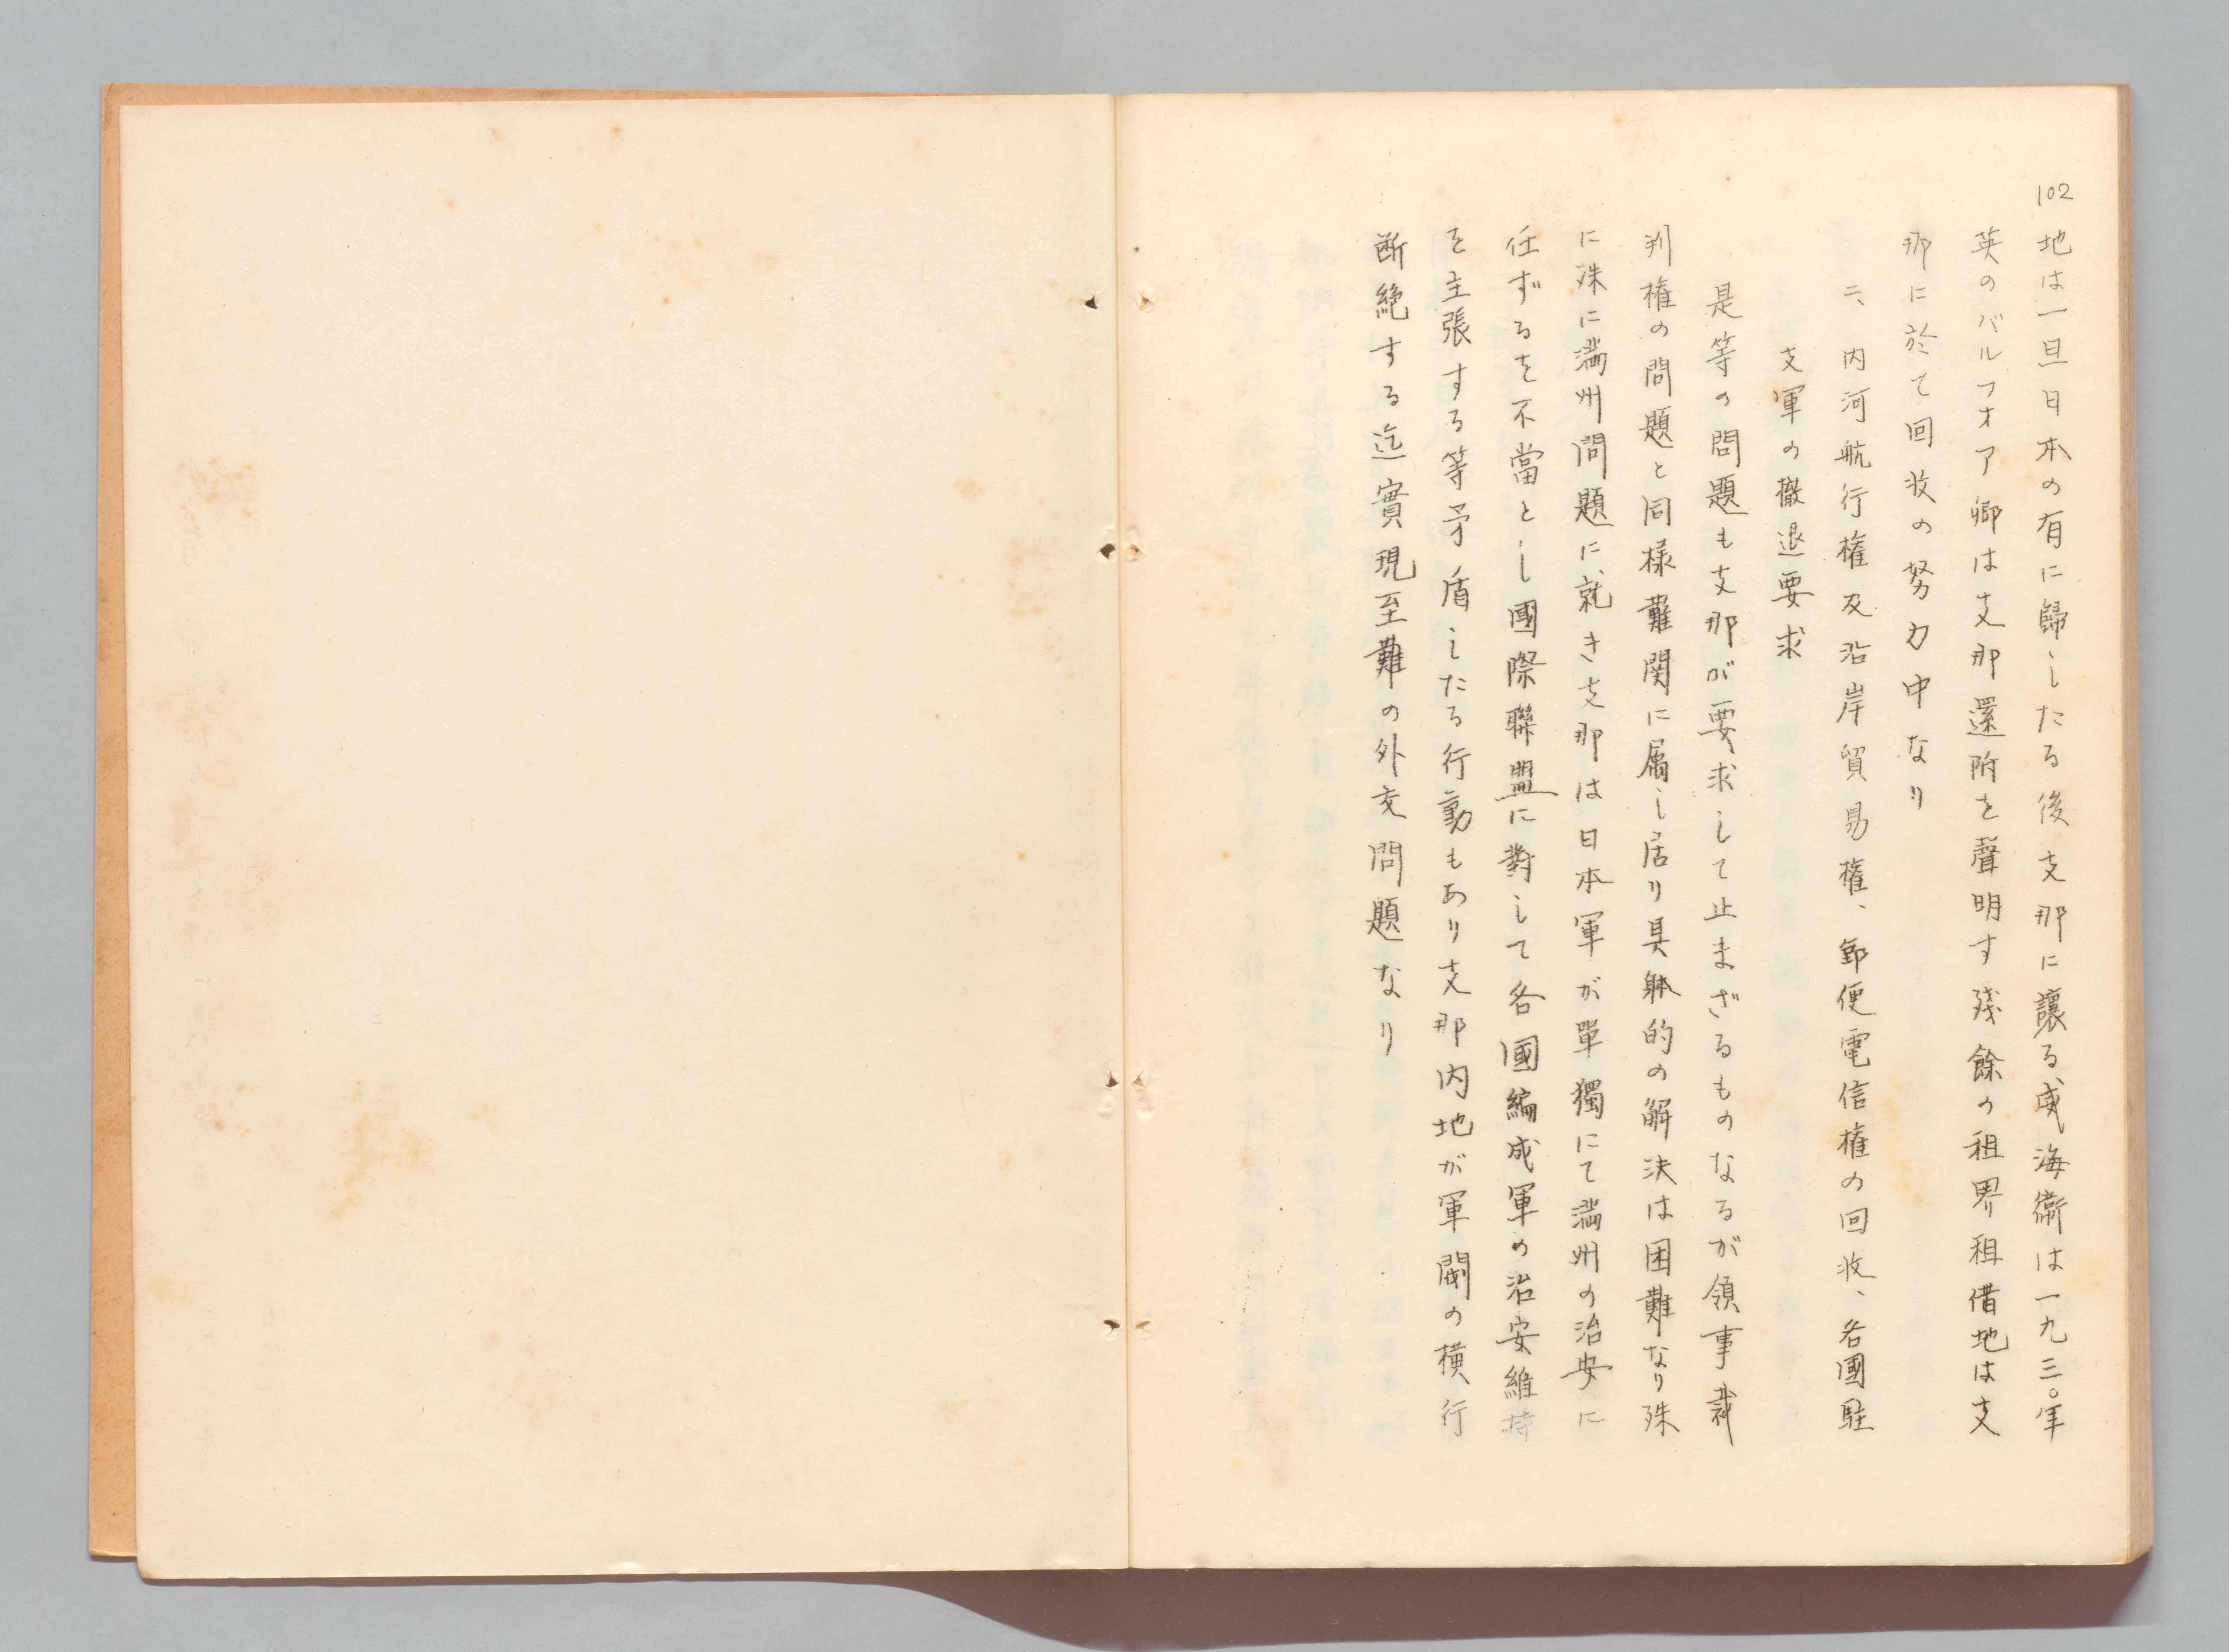 102
地は一旦日本の有に歸したる後支那に讓る威海衞は一九三〇年
英のバルフオア卿は支那還附を聲明す殘餘の租界租借地は支
那に於て回收の努力中なり
二、内河航行權及沿岸貿易權、郵便電信權の回收、各國駐
支軍の撤退要求
是等の問題も支那が要求して止まざるものなるが領事裁
判權の問題と同樣難関に属し居り具躰的の解決は困難なり殊
に殊に満州問題に就き支那は日本軍が單獨にて満州の治安に
任ずるを不當とし國際聯盟に對して各國編成軍の治安維持
を主張する等矛盾したる行動もあり支那内地が軍閥の横行
断絶する迄實現至難の外交問題なり